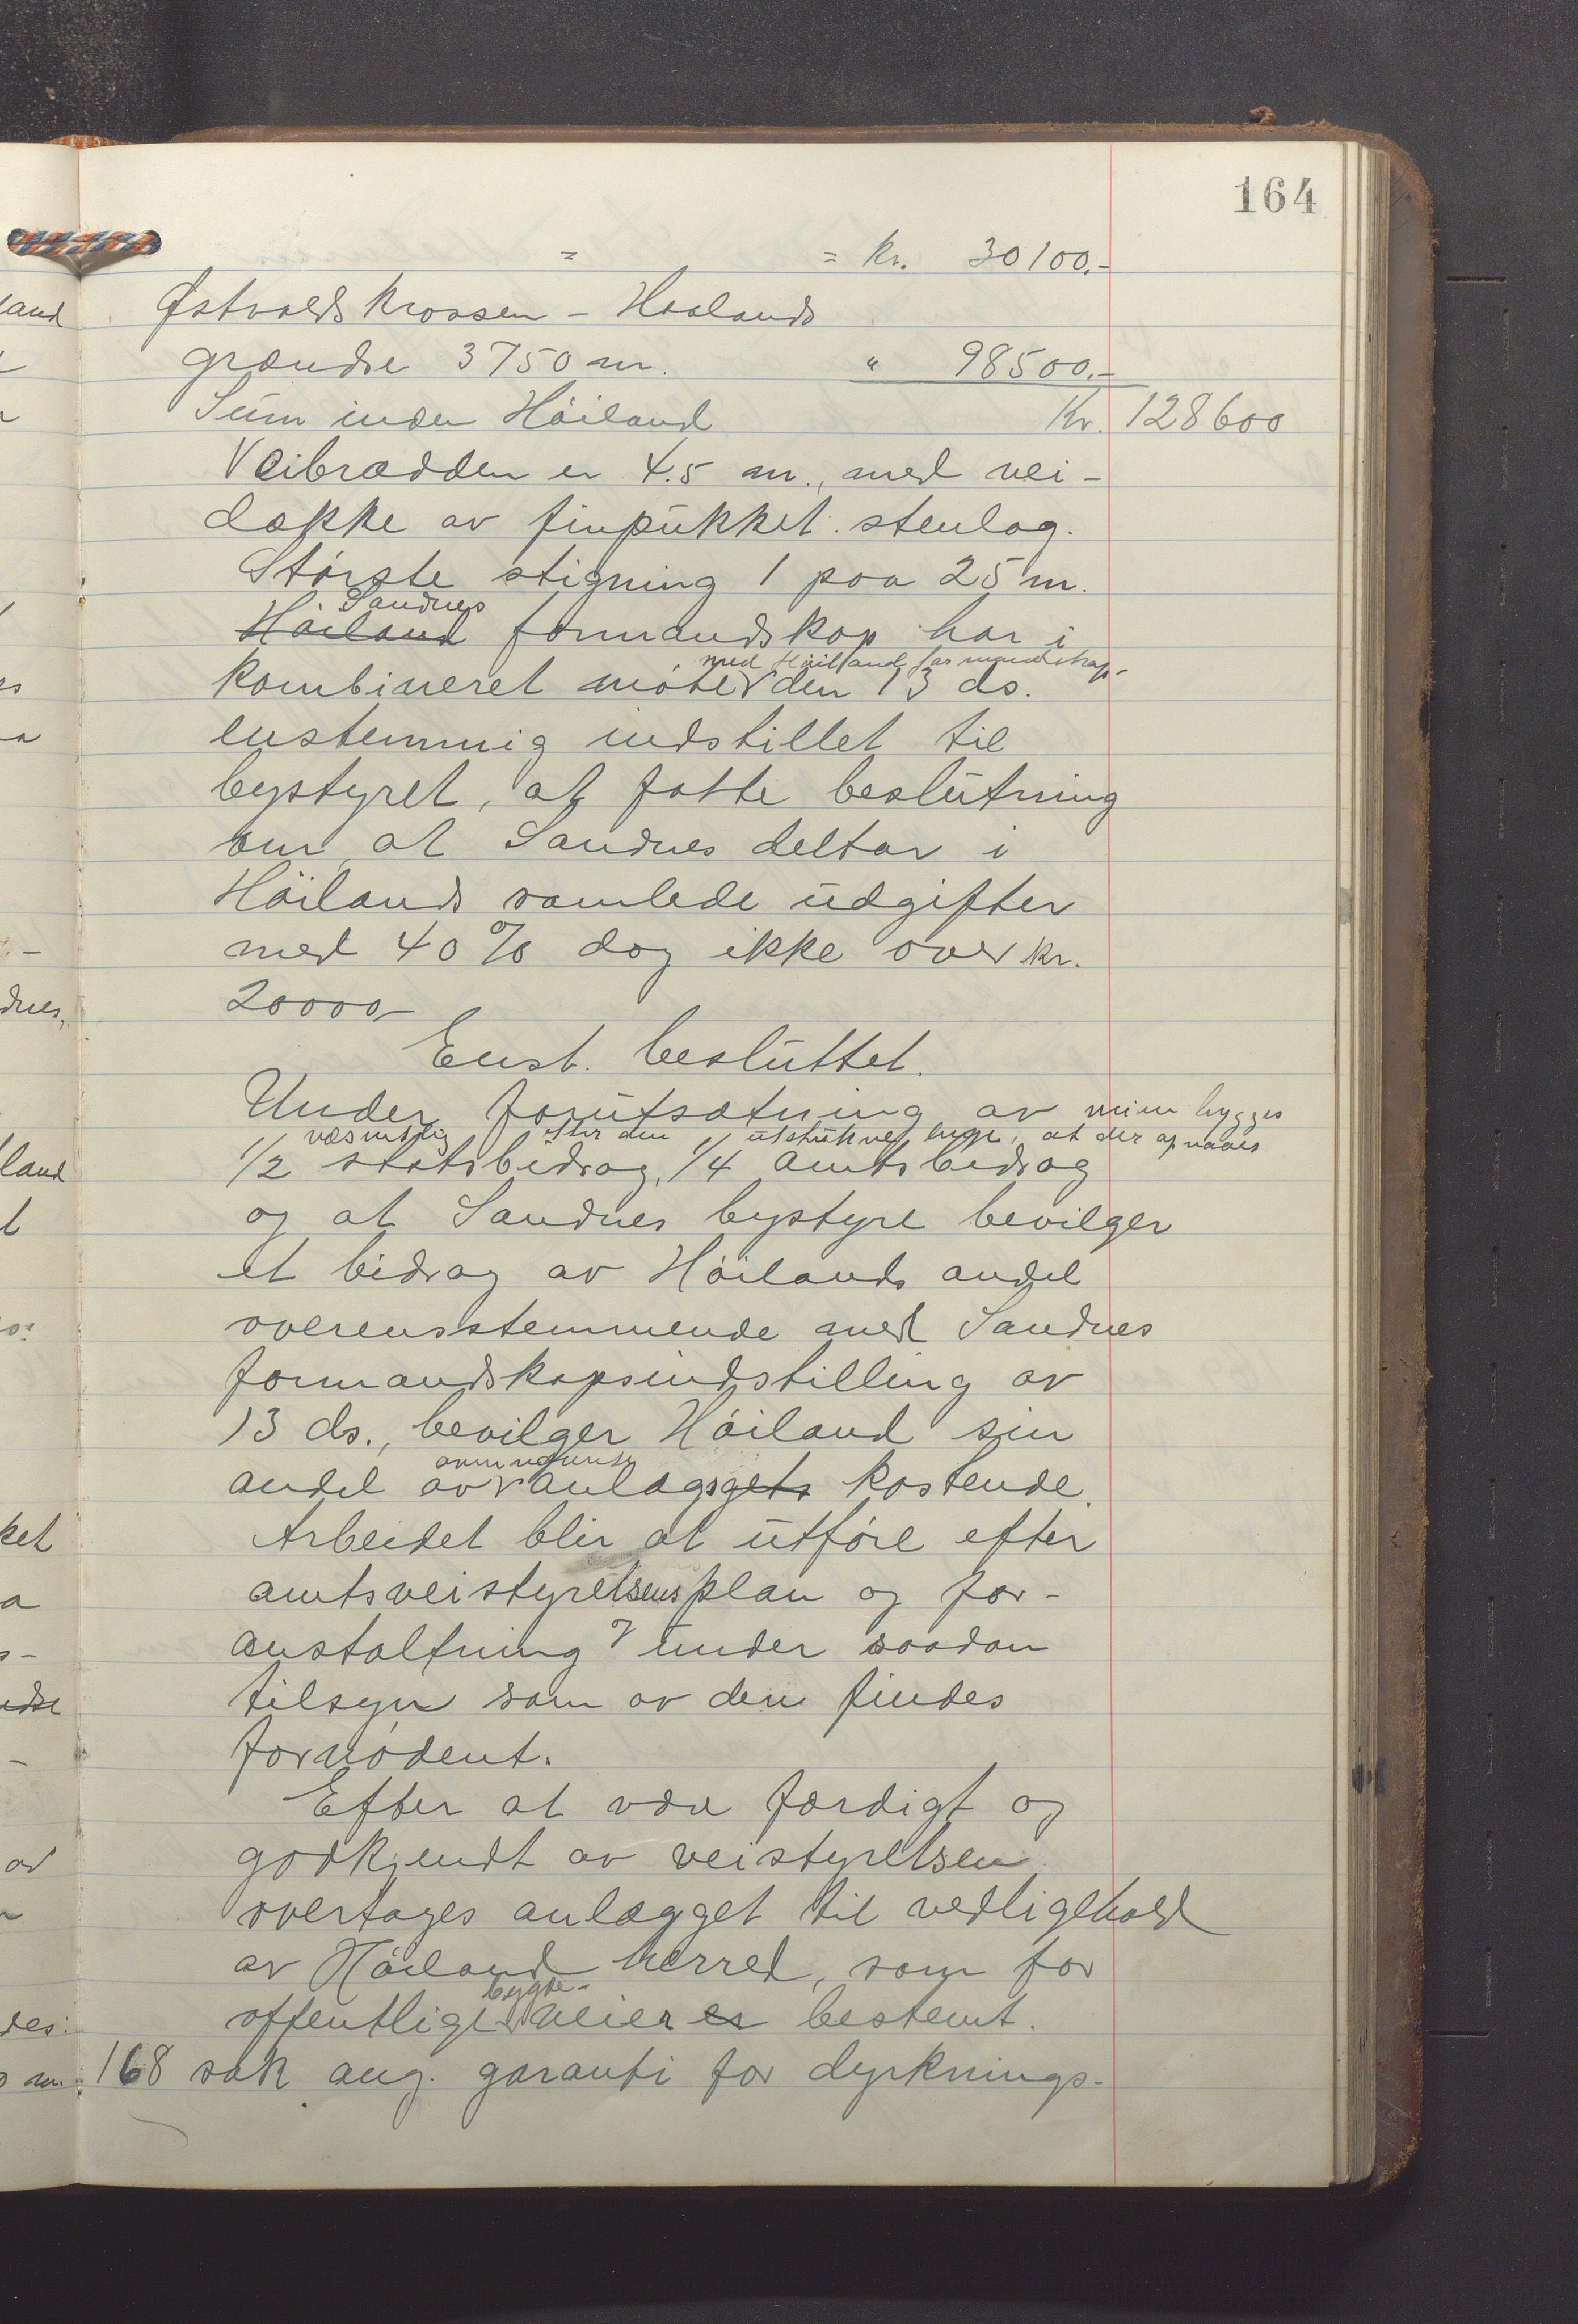 164
= = kr. 30100.-
Østvoldskrossen - Haalands
grændse 3750 m. " 98500.-
Sum inden Höiland Kr. 128600
Veibredden er 4.5 m., med vei-
dække av finpukket stenlag.
Største stigning 1 paa 25 m.
Sandnes
Höiland formandskap har i
med Höiland formandskap
kombineret møte den 13 ds.
enstemmig indstillet til
bystyret, at fatte beslutning
om at Sandnes deltar i
Höilands samlede udgifter
med 40 % dog ikke over kr.
20000,-
Enst. besluttet.
Under forutsætning av veien bygges
væsentlig efter den utstukne linje, at der opnaaes
1/2 statsbidrag, 1/4 amtsbidrag
og at Sandnes bystyre bevilger
et bidrag av Höilands andel
overensstemmende med Sandnes
formandskapsindstilling av
13 ds., bevilger Höiland sin
andel av anlæggets kostende.
Arbeidet blir at utføre efter
amtsveistyrelsens plan og for-
anstaltning & under saadan
tilsyn som av den findes
fornødent.
Efter at være færdigt og
godkjendt av veistyrelsen
overtages anlægget til vedligehold
av Höiland herred, som for
bygde-
offentlige veier er bestemt.
168 sak ang. garanti for dyrknings-